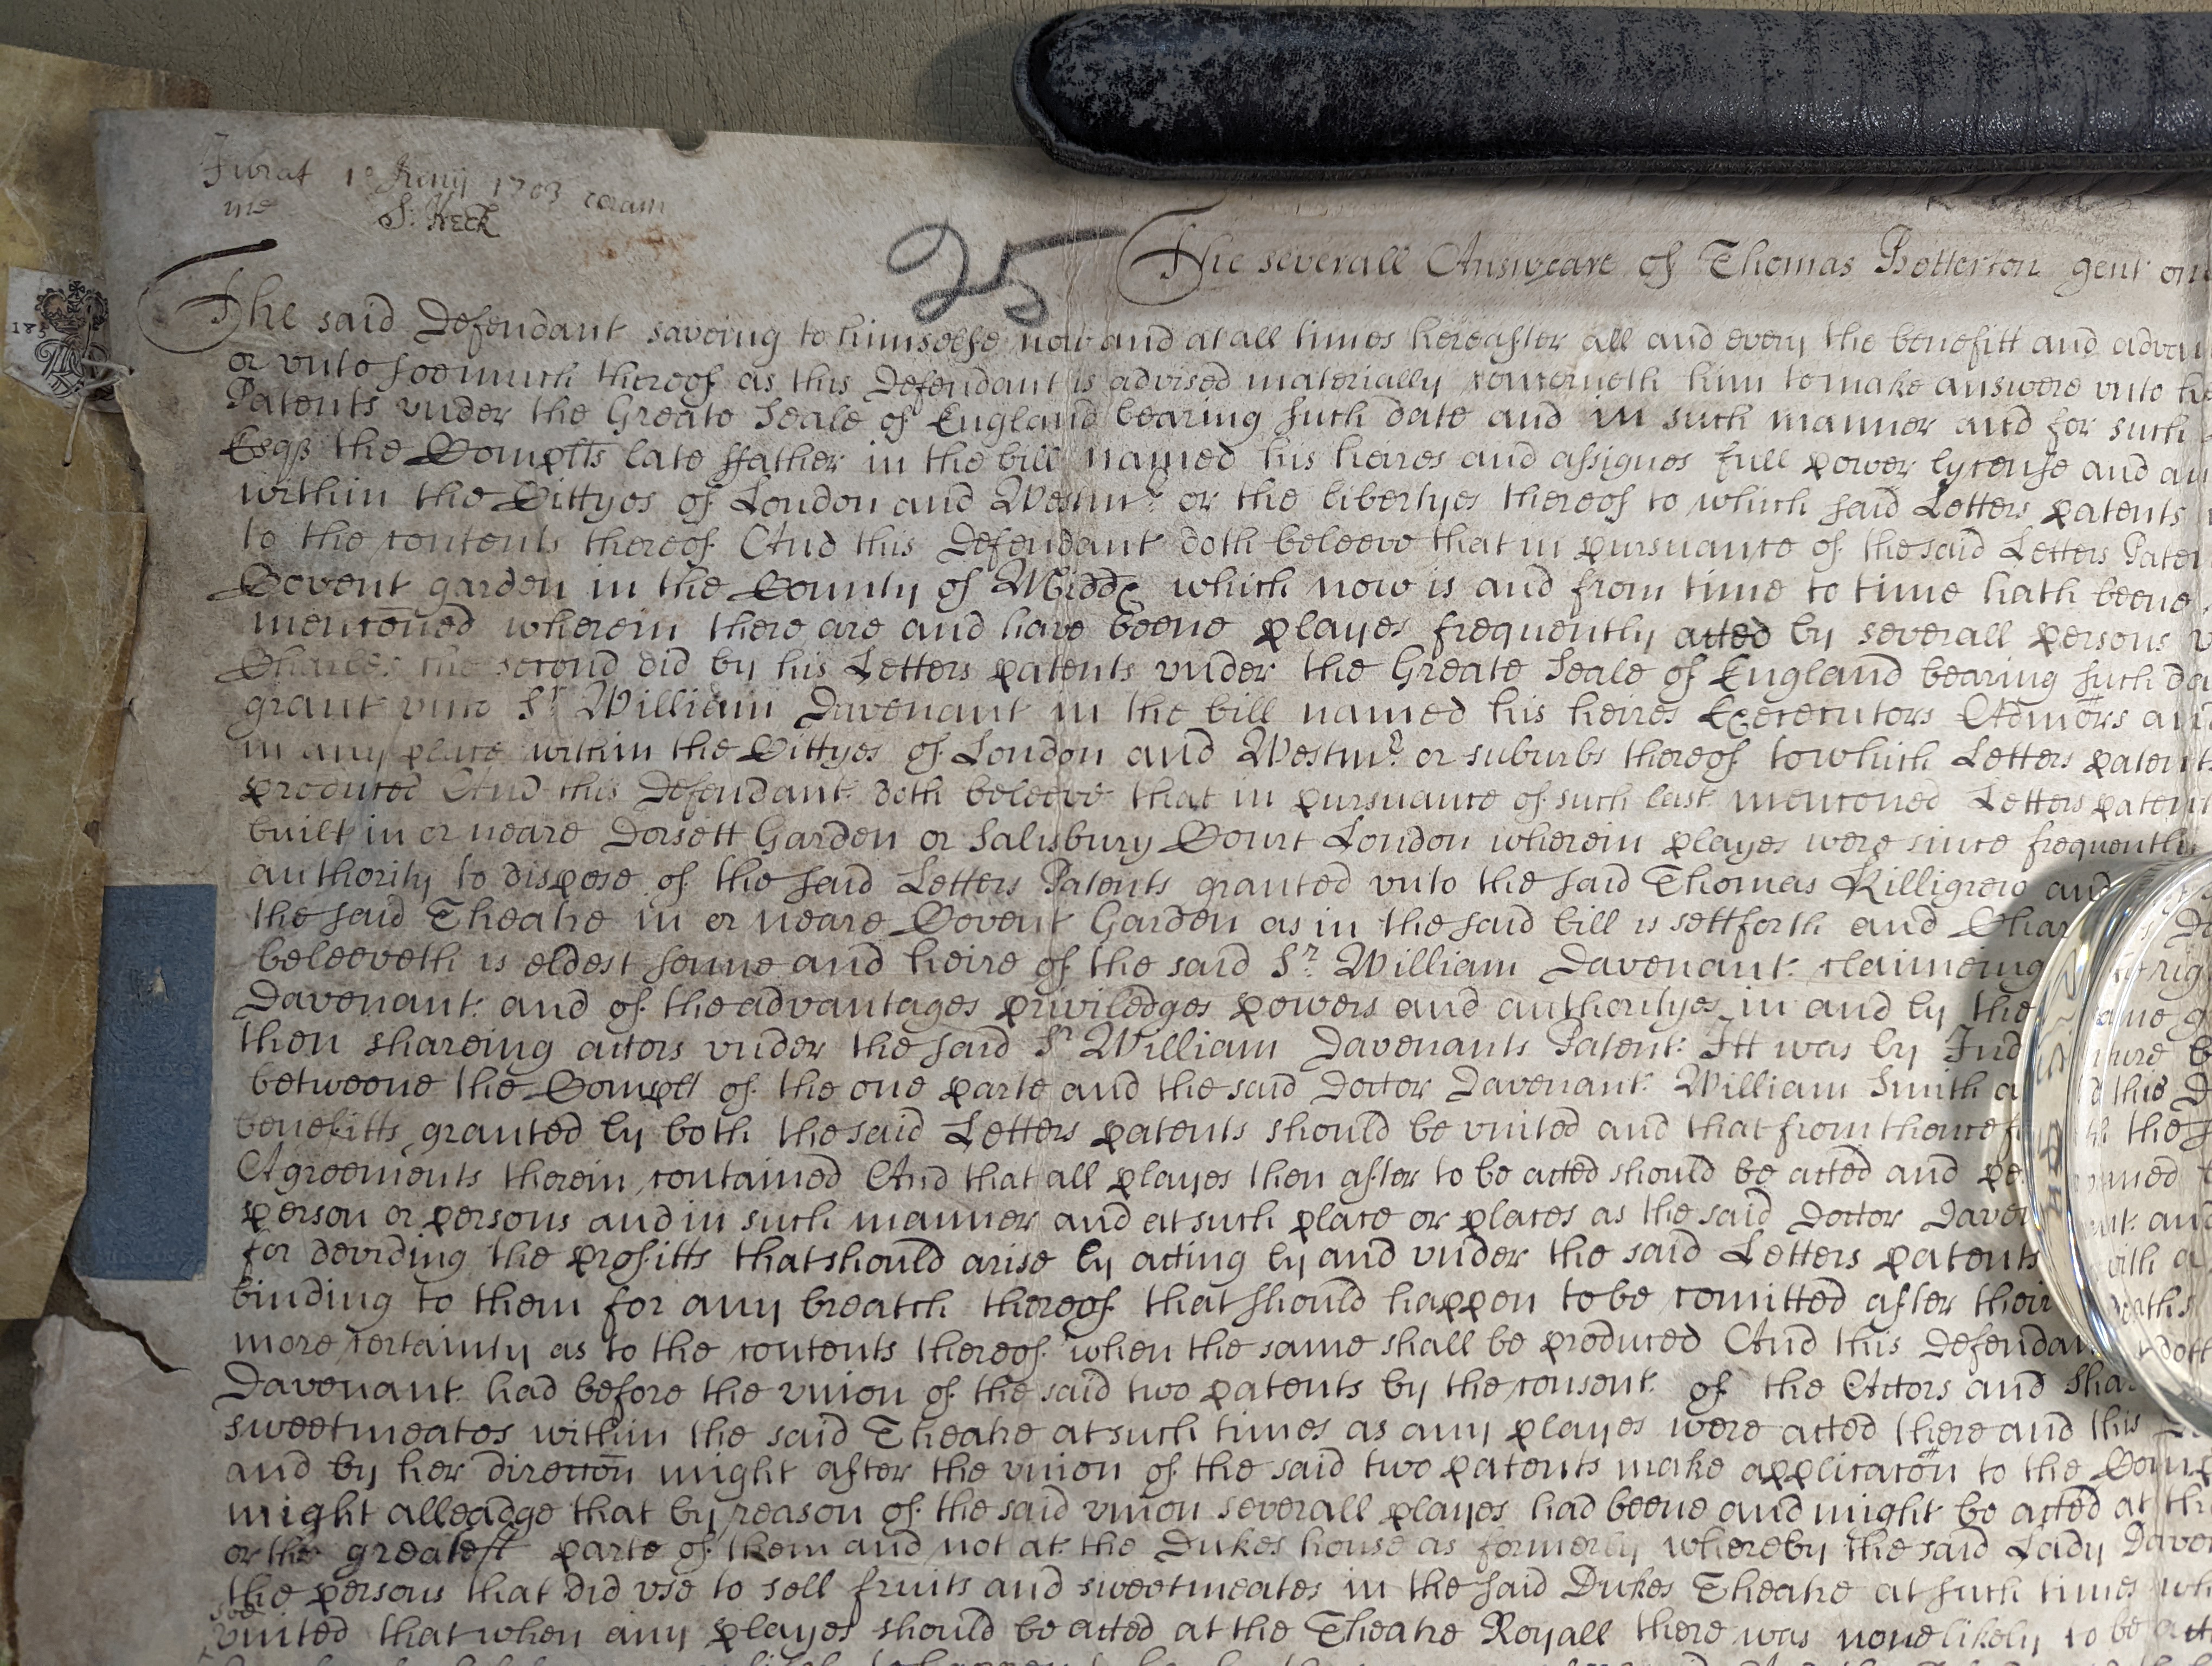 Jurat 1o Junij 1703 coram
me S: Keck
25
The severall Answeare of Thomas Betterton gent on
185
The said Defendant saveing to himselfe now and at all times hereafter all and every the benefitt and advan
or vnto soe much thereof as this Defendant is advised materially concerneth him to make answere vnto he
Patents vnder the Greate Seale of England bearing such date and in such manner and for such
Esqr the Complts late ffather in the bill named his heires and assignes full power lycense and au
within the Cittyes of London and Westmr: or the libertyes thereof to which said Letters patents
to the contents thereof And this Defendant doth beleeve that in pursuance of the said Letters Paten
Covent garden in the County of Midd which now is and from time to time hath beene
mencõned wherein there are and have beene playes frequently acted by severall persons
Charles the second did by his Letters patents vnder the Greate Seale of England bearing such da
grant vnto Sr William Davenant in the bill named his heires Executors Admors and
in any place within the Cittyes of London and Westmr: or suburbs thereof to which Letters patent
produced And this Defendant doth beleeve that in pursuance of such last mencõned Letters patent
built in or neare Dorsett Garden or Salisbury Court London wherein playes were since frequently
authority to dispose of the said Letters Patents granted vnto the said Thomas Killigrew and
the said Theatre in or neare Covent Garden as in the said bill is settforth and Char
beleeveth is eldest sonne and heire of the said Sr: William Davenant claimeing rig
Davenant and of the advantages priviledges powers and authorityes in and by the
then shareing actors vnder the said Sr William Davenants Patent: Itt was by Ind
betweene the Complt of the one parte and the said Doctor Davenant William Smith a this D
benefitts granted by both the said Letters patents should be vnited and that from thencef
Agreements therein contained And that all playes then after to be acted should be acted and pe
person or persons and in such manner and at such place or places as the said Doctor Daven and
for devideing the profitts that should arise by acting by and vnder the said Letters patents with a
binding to them for any breatch thereof that should happen to be comitted after their deaths
more certainty as to the contents thereof when the same shall be produced And this Defendan doth
Davenant had before the vnion of the said two patents by the consent of the Actors and sha
sweetmeates within the said Theatre at such times as any playes were acted there and this
and by her direccõn might after the vnion of the said two patents make applicacõn to the Comp
might alleadge that by reason of the said vnion severall playes had beene and might be acted at th
or the greatest parte of them and not at the Dukes house as formerly whereby the said Lady Daven
the persons that did vse to sell fruits and sweetmeates in the said Dukes Theatre at such times wh
soe
vnited that when any playes should be acted at the Theatre Royall there was none likely to be act